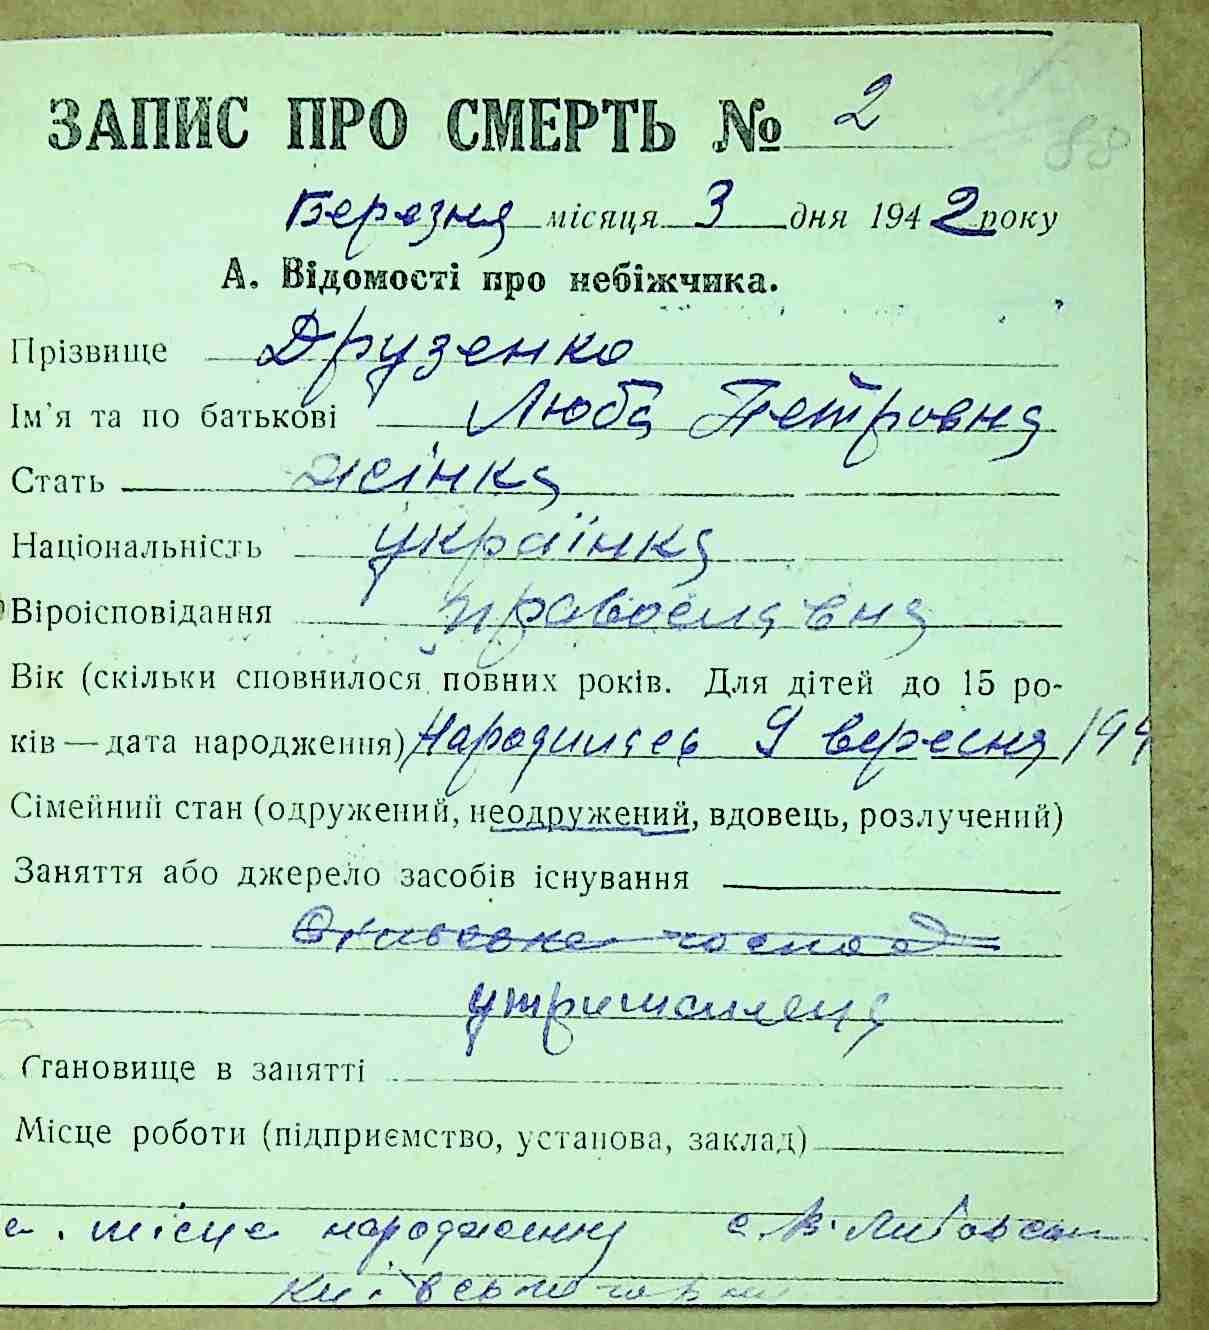 ЗАПИС ПРО СМЕРТЬ № 2
88
Березня місяця 3 дня 1942 року
А. Відомості про небіжчика.
Прізвище Друзенко
Ім'я та по батькові Люба Петровна
Стать жінка
Національність українка
Віроісповідання православна
Вік (скільки сповнилося повних років. Для дітей до 15 ро-
ків — дата народження) Народилась 9 вересня 194
Сімейний стан (одружений, неодружений, вдовець, розлучений)
Заняття або джерело засобів існування
господ
утриманеця
Становище в занятті
Місце роботи (підприємство, установа, заклад)
місце народження с. В.